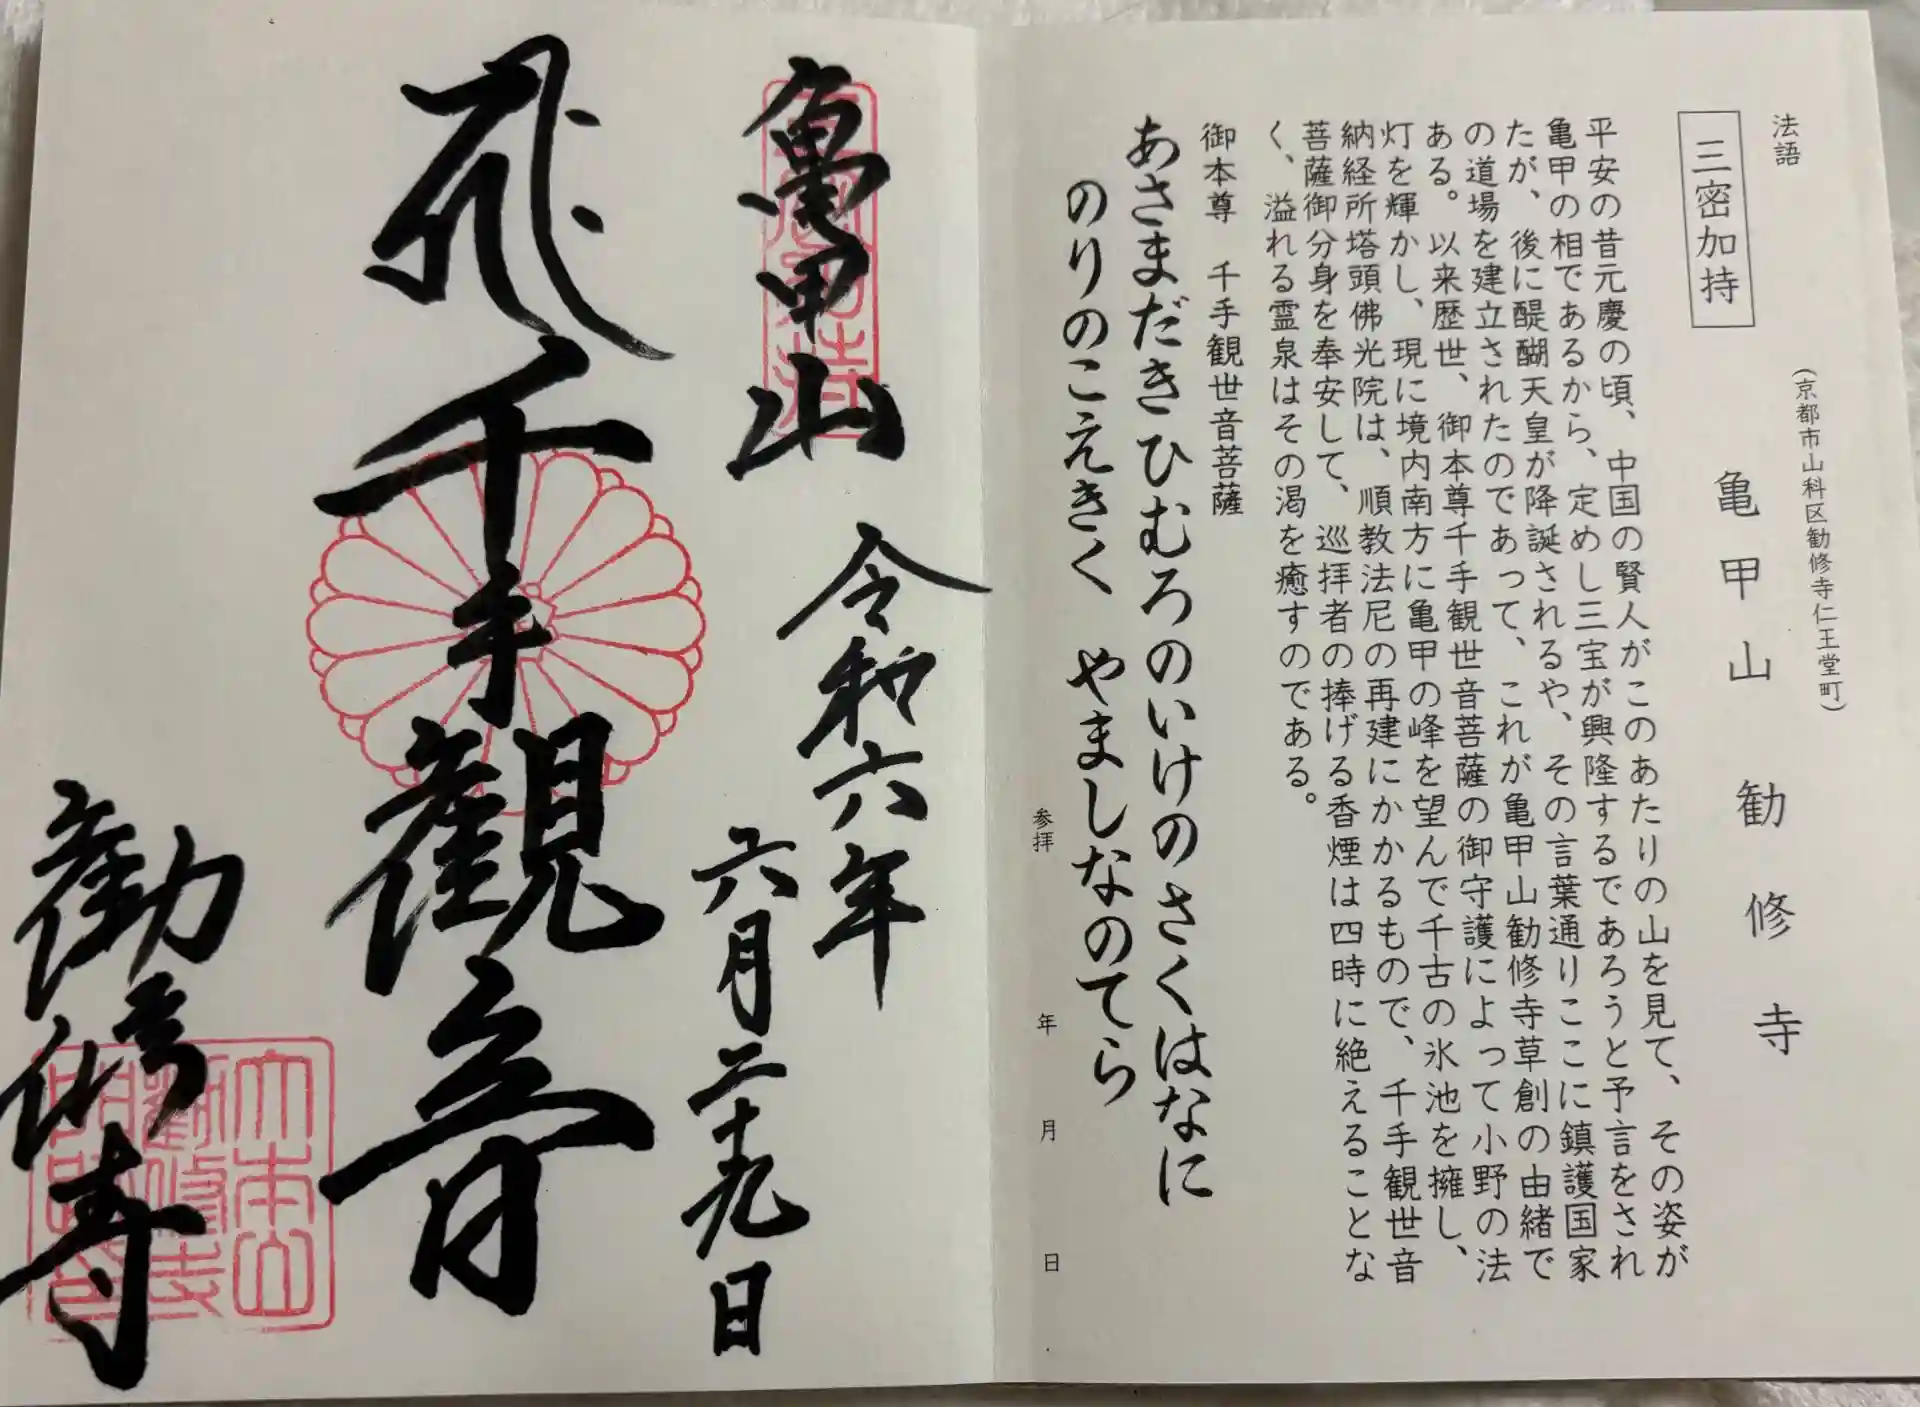 法語
三密加持
(京都市山科区勧修寺仁王堂町)
亀甲山 勧修寺
平安の昔元慶の頃、中国の賢人がこのあたりの山を見て、その姿が
亀甲の相であるから、定めし三宝が興隆するであろうと予言をされ
たが、後に醍醐天皇が降誕されるや、その言葉通りここに鎮護国家
の道場を建立されたのであって、これが亀甲山勧修寺草創の由緒で
ある。以来歴世、御本尊千手観世音菩薩の御守護によって小野の法
灯を輝かし、現に境内南方に亀甲の峰を望んで千古の氷池を擁し、
納経所塔頭佛光院は、順教法尼の再建にかかるもので、千手観世音
菩薩御分身を奉安して、巡拝者の捧げる香煙は四時に絶えることな
く、溢れる霊泉はその渇を癒すのである。
御本尊 千手観世音菩薩
あさまだきひむろのいけのさくはなに
のりのこえきく やましなのてら
参拝 年 月 日
亀甲山
令和六年
六月二十九日
千手観音
勧修寺
三密加持
大本山
勧修寺